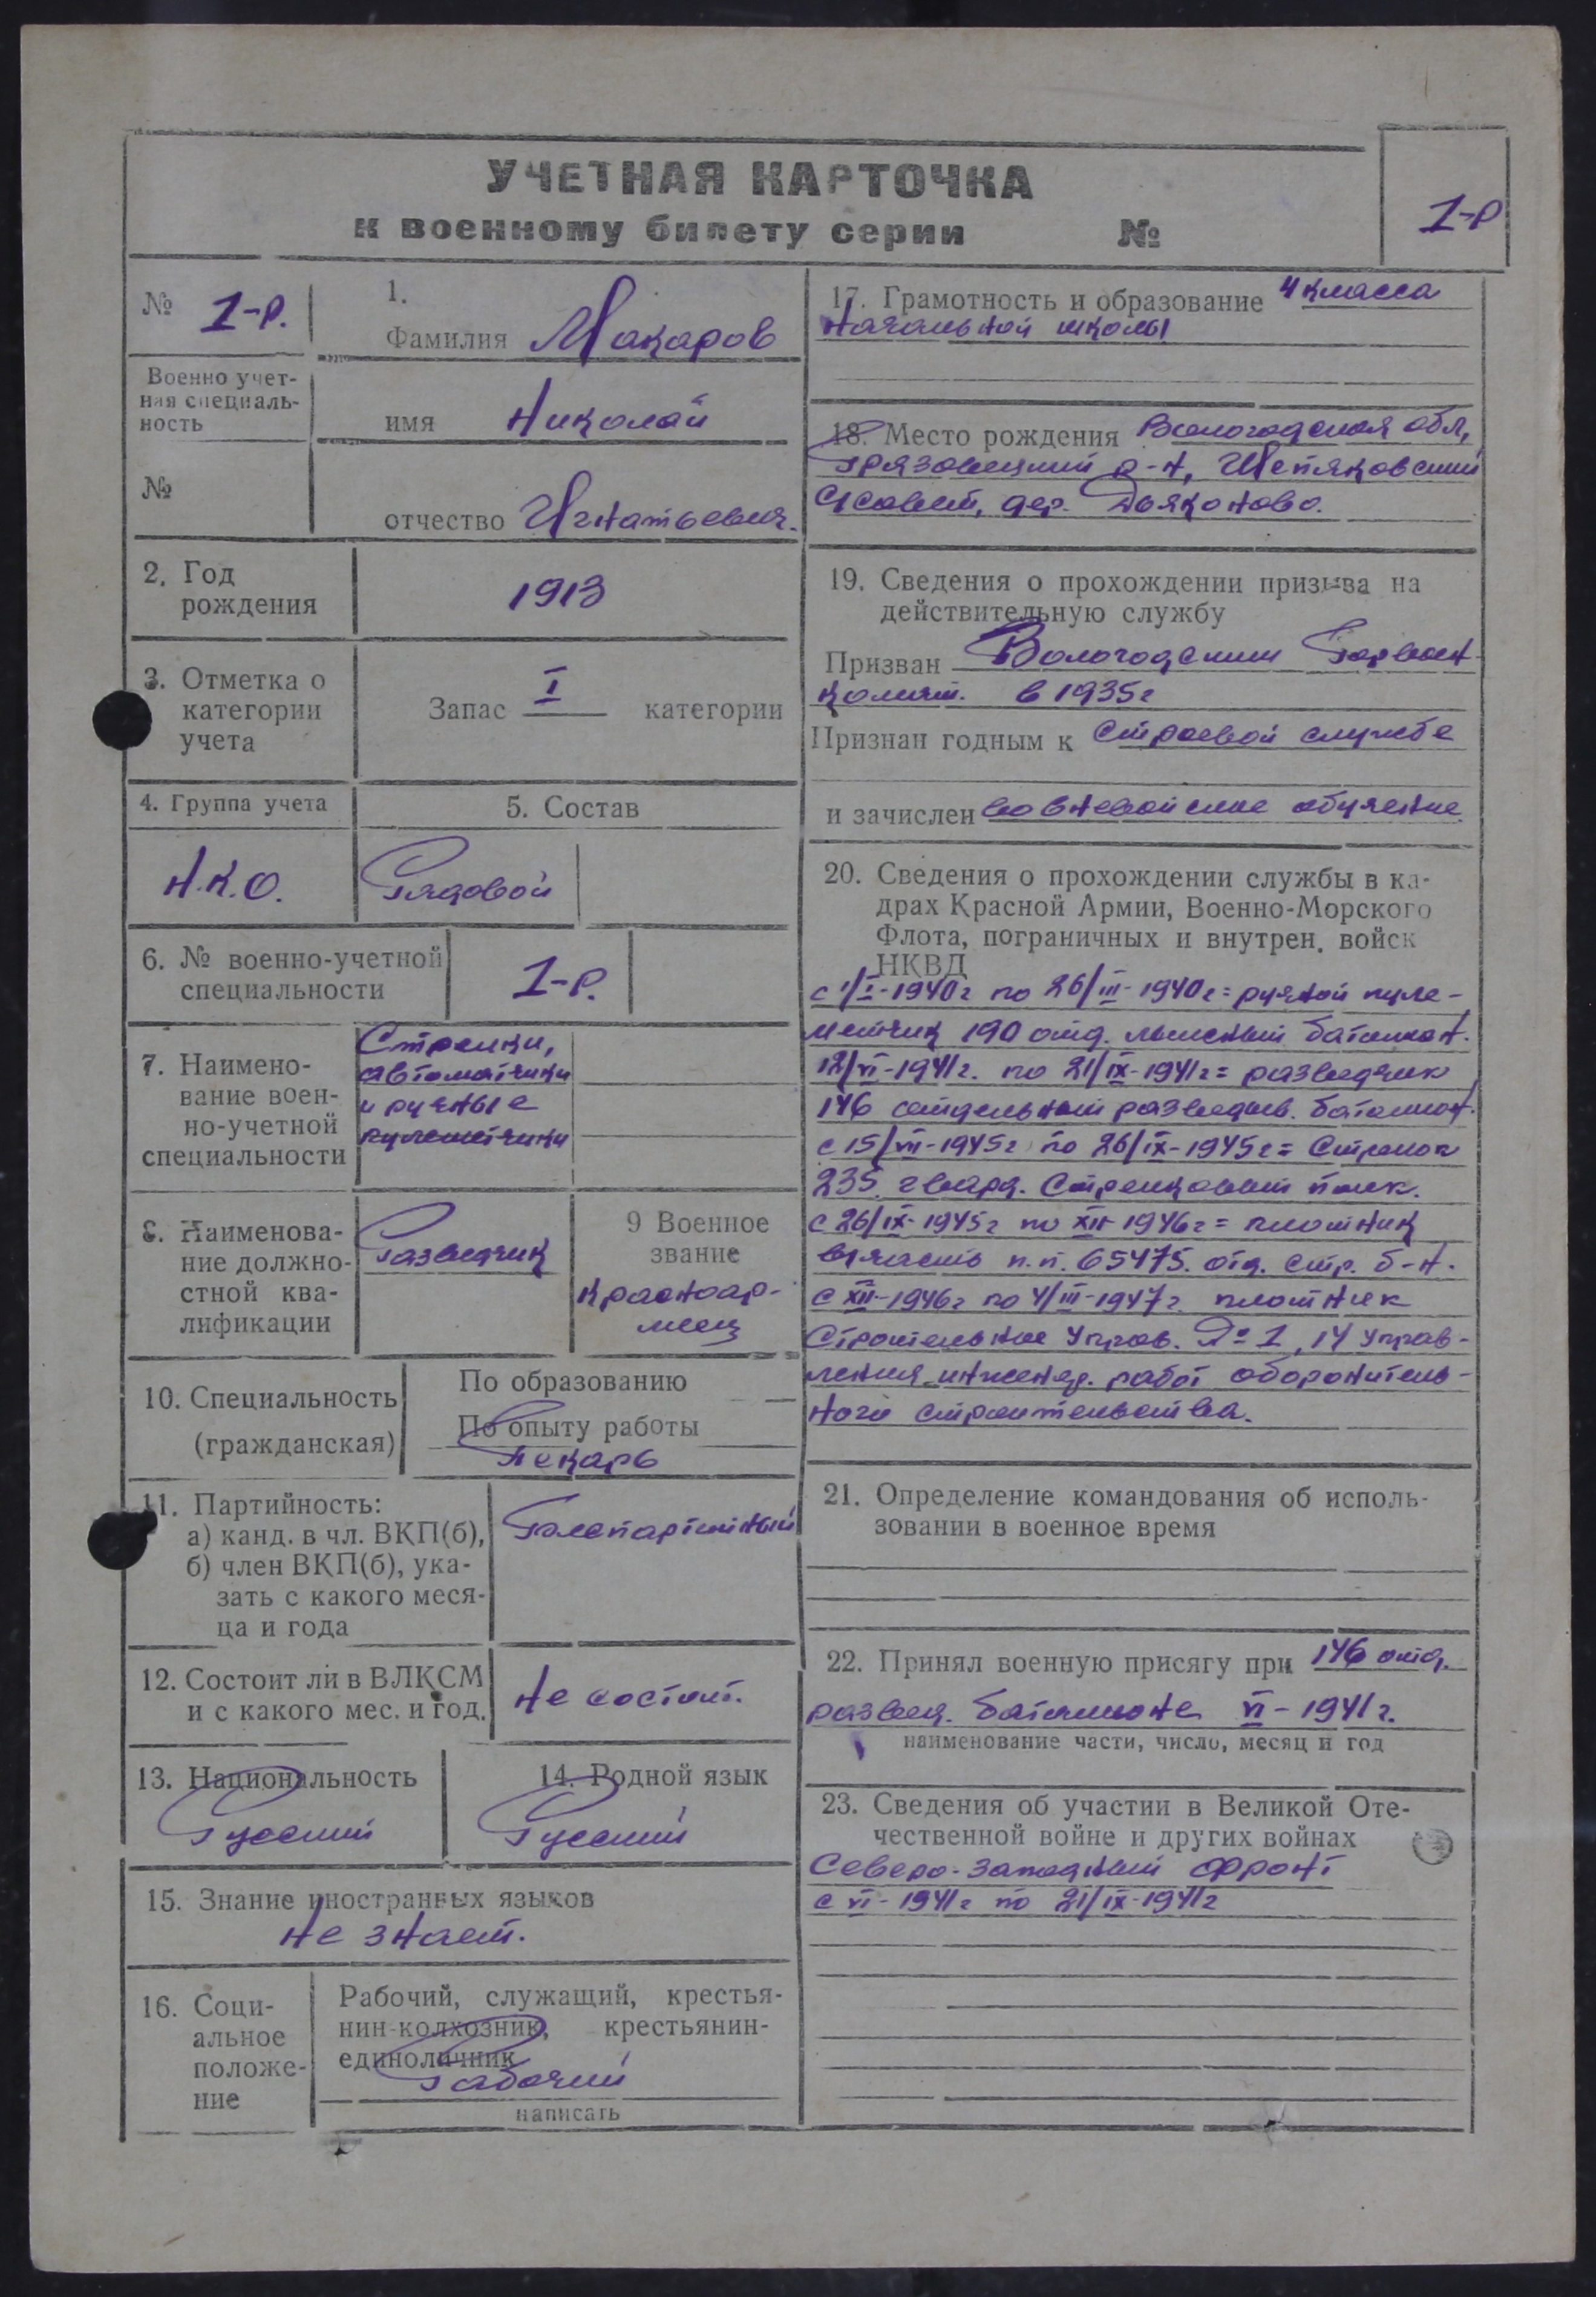 УЧЕТНАЯ КАРТОЧКА
к военному билету серии №
1-Р
№ 1-Р.
1.
Фамилия Макаров
Военно учет-
ная специаль-
ность
имя Николай
№
отчество Игнатьевич.
2. Год
рождения
1913
3. Отметка о
категории
учета
Запас I категории
4. Группа учета
5. Состав
Н.К.О.
Рядовой
6. № военно-учетной
специальности
1-Р.
7. Наимено-
вание воен-
но-учетной
специальности
Стрелки,
автоматчики
и ручные
пулеметчики
8. Наименова-
ние должно-
стной ква-
лификации
Разведчик
9 Военное
звание
Красноар-
меец
10. Специальность
(гражданская)
По образованию —
По опыту работы
Пекарь
11. Партийность:
а) канд. в чл. ВКП(б),
б) член ВКП(б), ука-
зать с какого меся-
ца и года
Беспартийный
12. Состоит ли в ВЛКСМ
и с какого мес. и год.
Не состоит.
13. Национальность
Русский
14. Родной язык
Русский
15. Знание иностранных языков
Не знает.
16. Соци-
альное
положе-
ние
Рабочий, служащий, крестья-
нин-колхозник, крестьянин-
единоличник
Рабочий
написать
17. Грамотность и образование 4 класса
Начальной школы
18. Место рождения Вологодская обл,
Грязовецкий р-н, Шепяковский
С/совет, дер. Дьяконово.
19. Сведения о прохождении призыва на
действительную службу
Призван Вологодским Горвоен-
комат. в 1935г
Признан годным к строевой службе
и зачислен во вневойсковое обучение
20. Сведения о прохождении службы в ка-
драх Красной Армии, Военно-Морского
Флота, пограничных и внутрен. войск
НКВД
с 1/I-1940г по 26/III-1940г = ручной пуле-
метчик 190 отд. лыжный батальон.
12/VI-1941г. по 21/IX-1941г = разведчик
146 отдельный разведыв. батальон.
с 15/VII-1945г по 26/IX-1945г = Стрелок
235 гвард. Стрелковый полк.
с 26/IX-1945г по XII-1946г = плотник
в/часть п.п. 65475. отд. стр. б-н.
с XII-1946г по 4/III-1947г. плотник
Строительное Управ. № 1, 14 управ-
ления инженер. работ оборонитель-
ного строительства.
21. Определение командования об исполь-
зовании в военное время
22. Принял военную присягу при 146 отд.
развед. батальоне VI-1941г.
наименование части, число, месяц и год
23. Сведения об участии в Великой Оте-
чественной войне и других войнах
Северо-Западный фронт
с VI-1941г по 21/IX-1941г